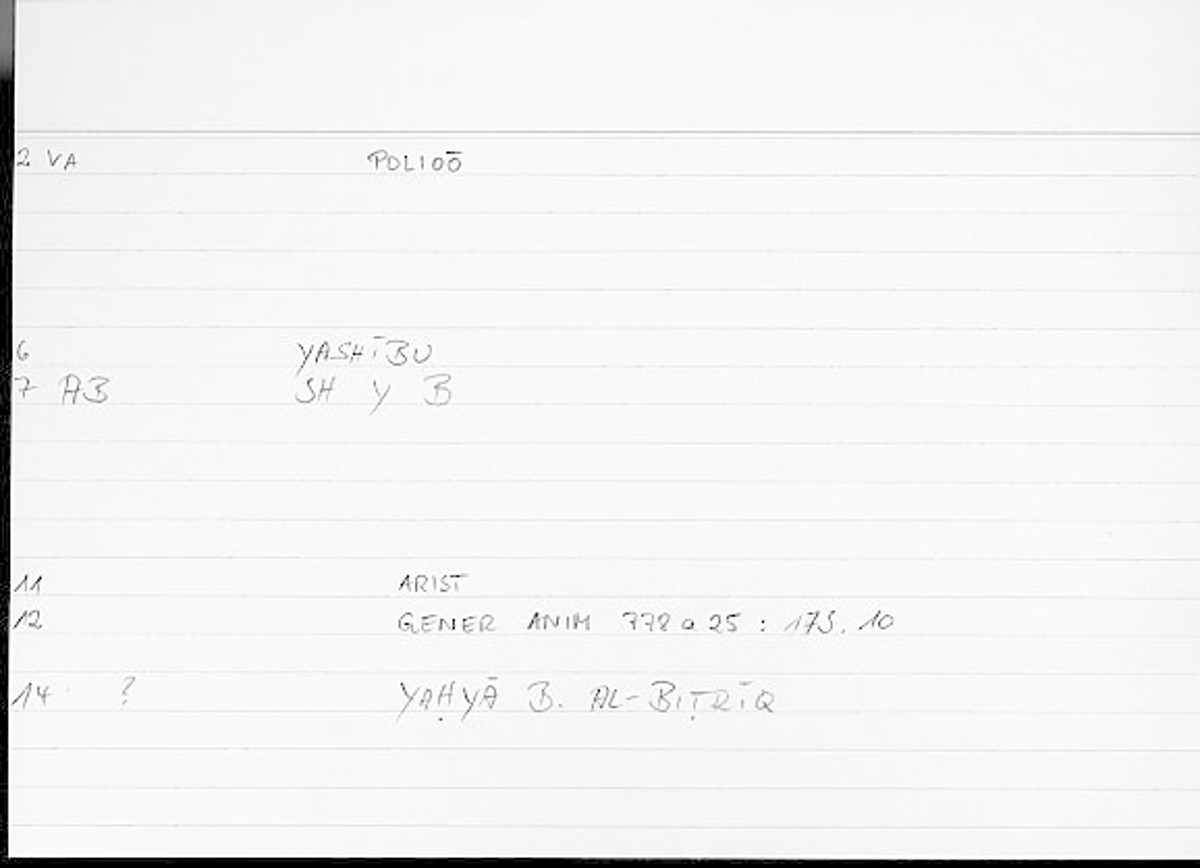 2 VA POLIOŌ
6 YASHĪBU
7 AB SH Y B
11 ARIST
12 GENER ANIM 778 a 25 : 173, 10
14 ? YAḤYĀ B. AL-BIṬRĪQ